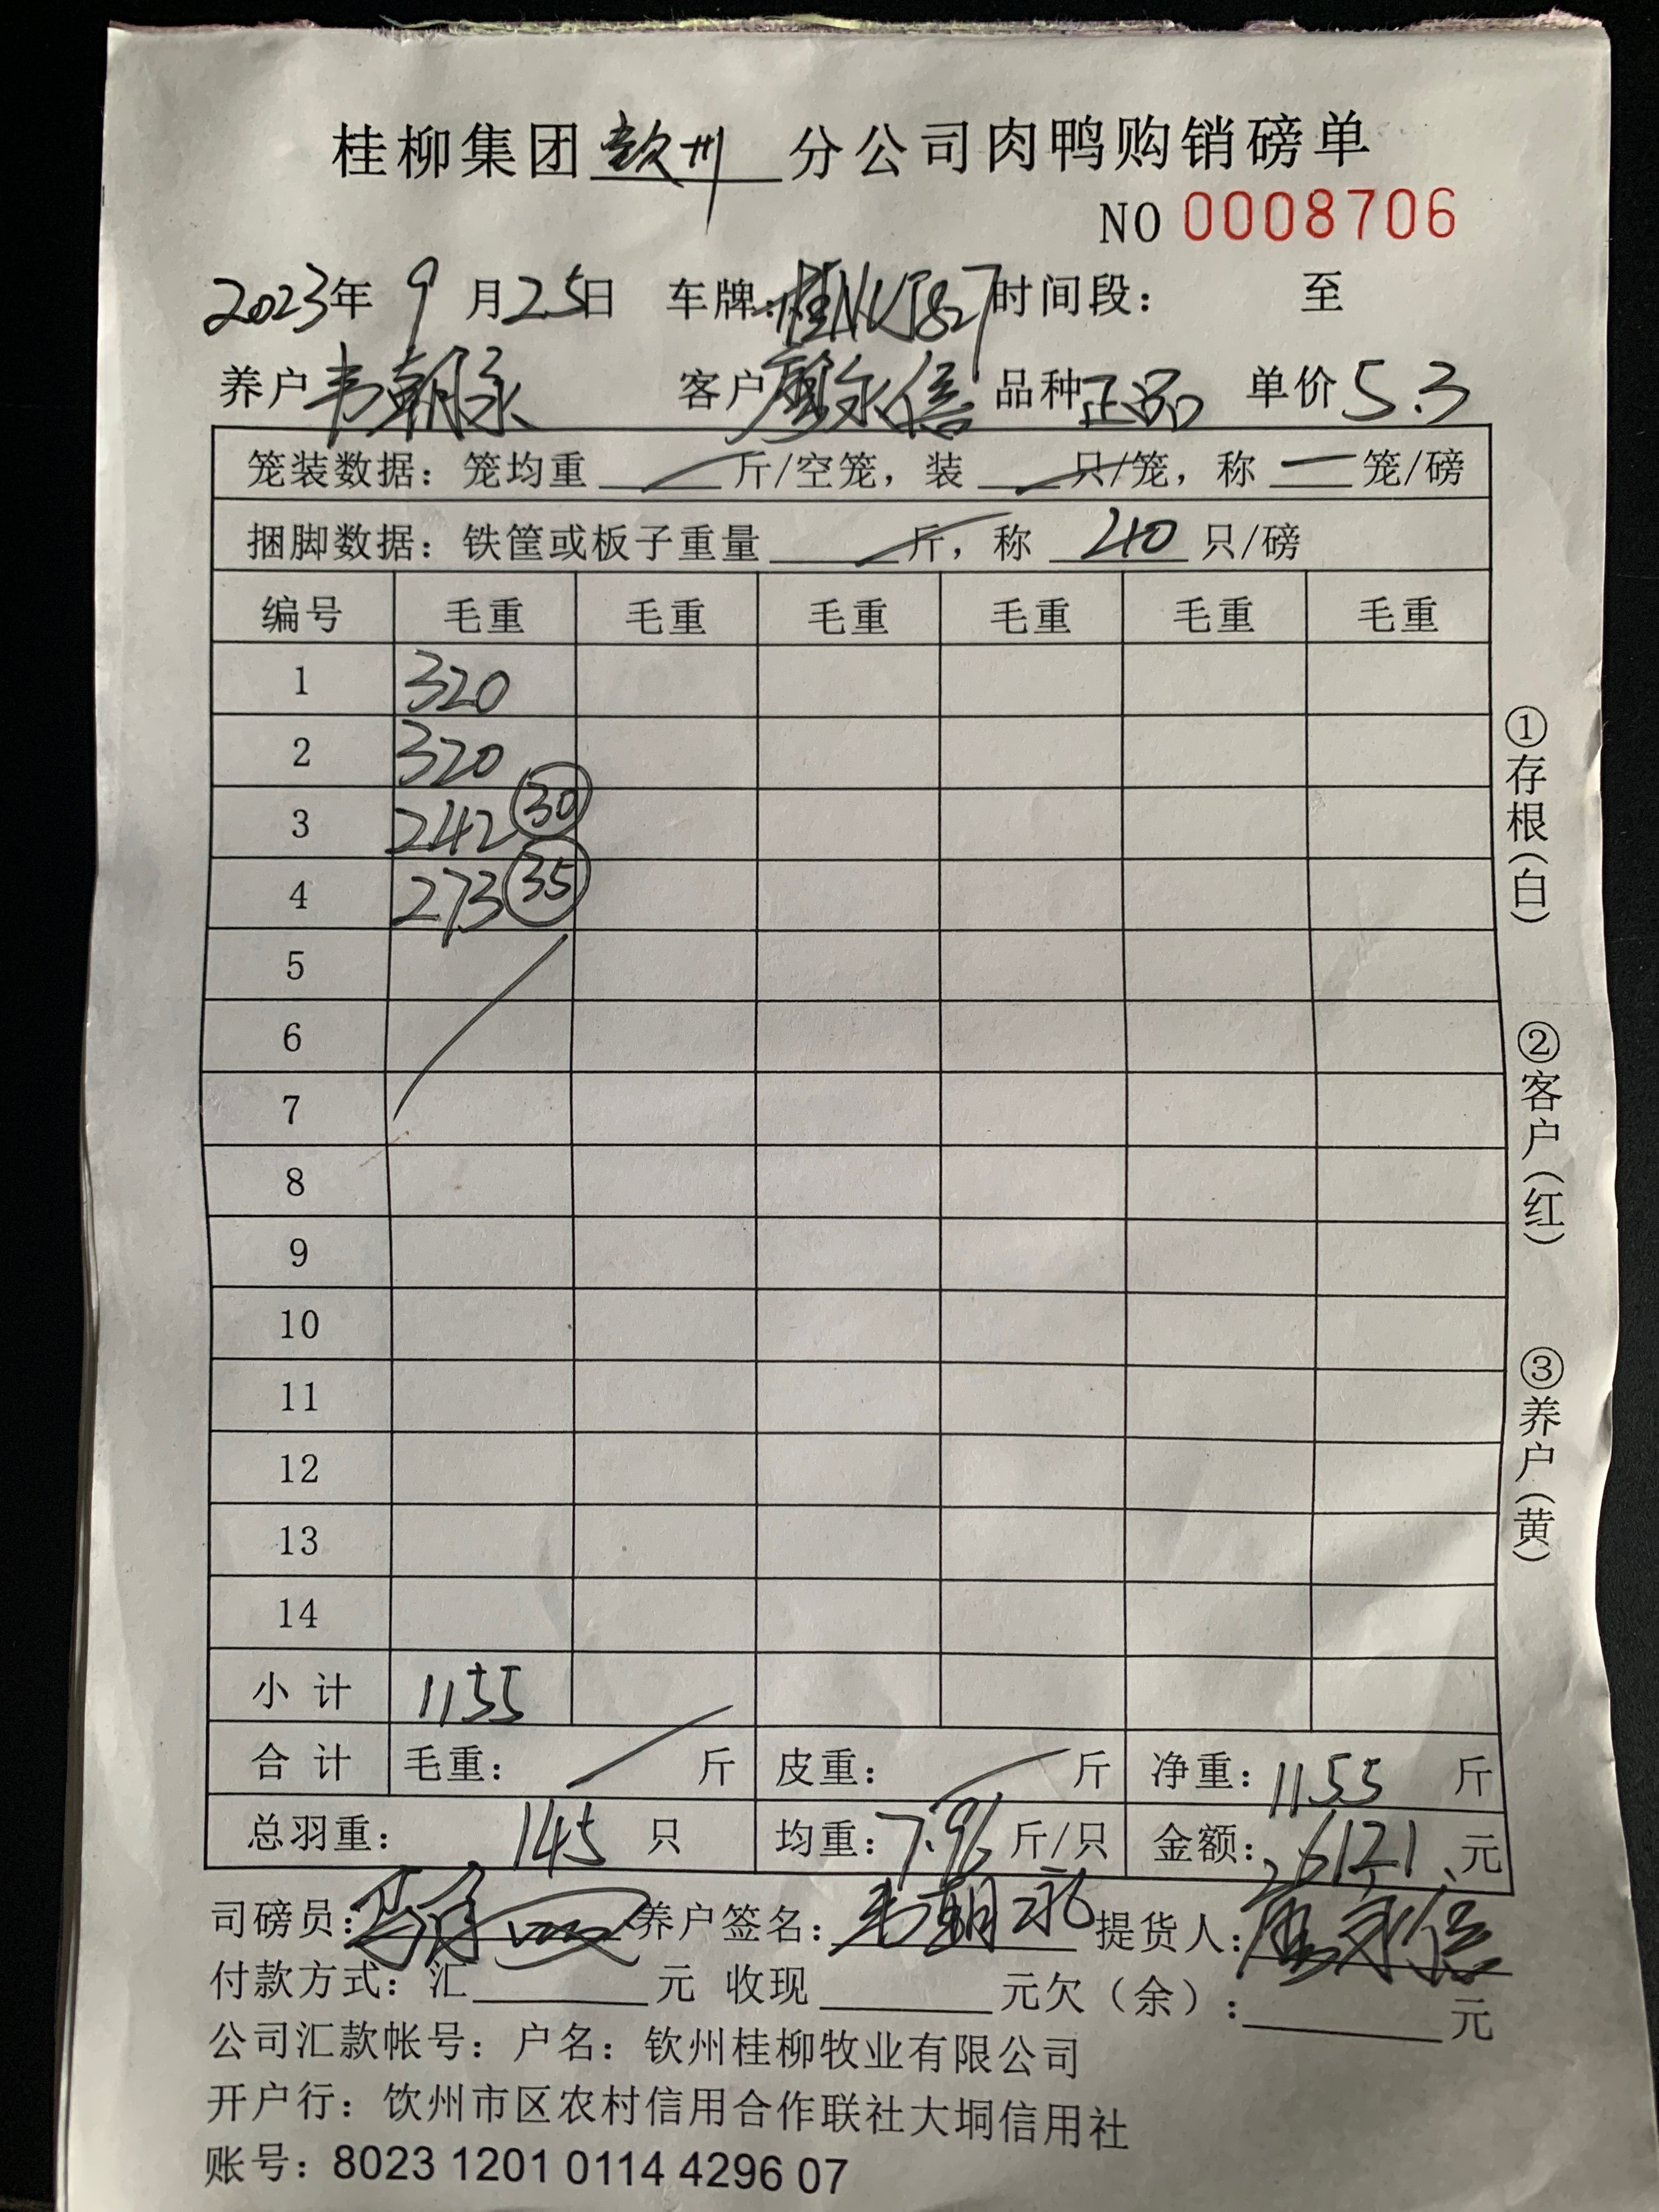 桂柳集团 钦州 分公司肉鸭购销磅单
NO 0008706
2023年 9月25日 车牌: 时间段: 至
养户 韦朝永 客户 廖永信 品种 正品 单价 5.3
笼装数据: 笼均重 斤/空笼, 装 只/笼, 称 笼/磅
捆脚数据: 铁筐或板子重量 斤, 称 40 只/磅
编号 毛重 毛重 毛重 毛重 毛重 毛重
1 320
2 320
3 242 30
4 273 35
5
6
7
8
9
10
11
12
13
14
小计 1155
合计 毛重: 斤 皮重: 斤 净重: 1155 斤
总羽重: 145 只 均重: 7.96 斤/只 金额: 6121 元
司磅员: 养户签名: 韦朝永 提货人: 廖永信
付款方式: 汇 元 收现 元欠(余): 元
公司汇款帐号: 户名: 钦州桂柳牧业有限公司
开户行: 钦州市区农村信用合作联社大垌信用社
账号: 8023 1201 0114 4296 07
①存根(白)
②客户(红)
③养户(黄)